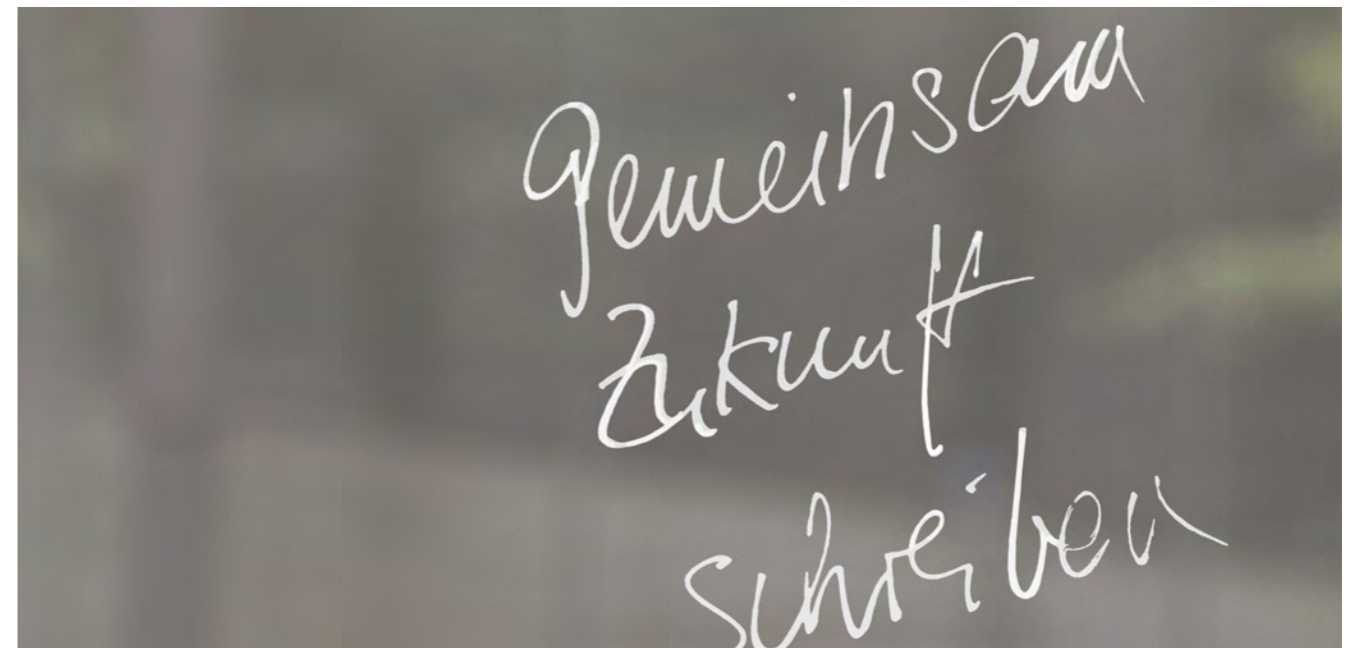 Gemeinsam
Zukunft
schreiben